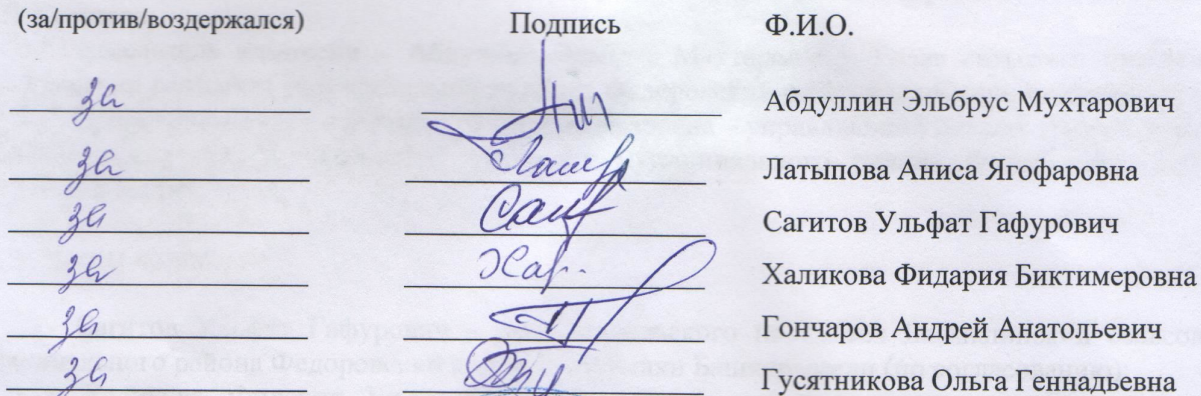 (за/против/воздержался) Подпись Ф.И.О.
за Абдуллин Эльбрус Мухтарович
за Латыпова Аниса Ягофаровна
за Сагитов Ульфат Гафурович
за Халикова Фидария Биктимеровна
за Гончаров Андрей Анатольевич
за Гусятникова Ольга Геннадьевна